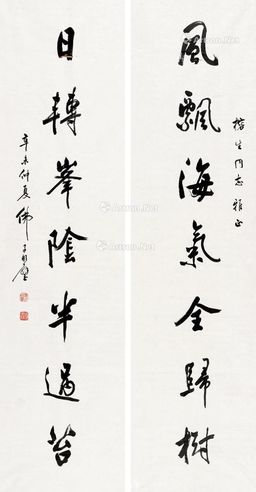 楷生同志雅正
風飄海氣全歸樹
日轉峯陰半過苔
辛未仲夏佛